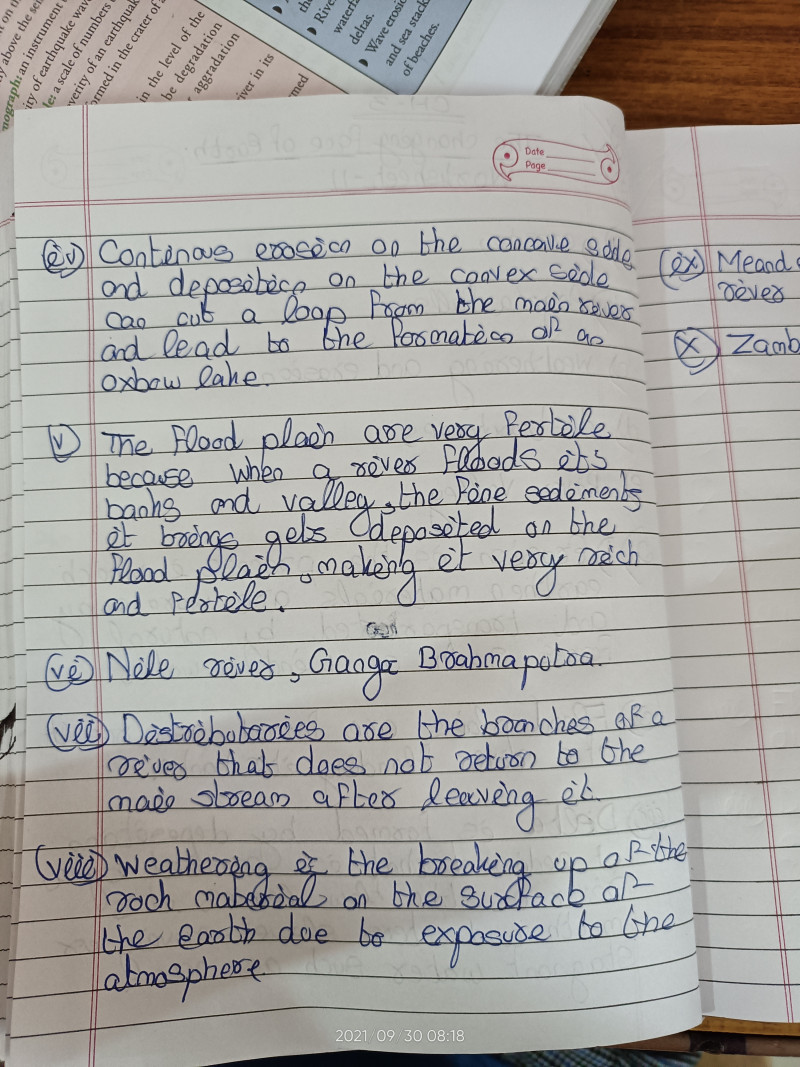 mograph: an instrument
ity of earthquake wav
a scale of numbers
verity of an earthquak
ormed in the crater of
in the level of the
be degradation
aggradation
iver in its
med
River
waterf
deltas.
Wave erosi
and sea stack
of beaches.
Date
Page
(iv) Continous erosion on the concave side
and deposition on the convex side
can cut a loop from the main river
and lead to the formation of an
oxbow lake.
(v) The flood plain are very fertile
because when a river floods its
banks and valley, the fine sediments
it brings gets deposited on the
flood plain, making it very rich
and fertile.
(vi) Nile river, Ganga Brahmaputra.
(vii) Distributaries are the branches of a
river that does not return to the
main stream after leaving it.
(viii) Weathering is the breaking up of the
rock material on the surface of
the earth due to exposure to the
atmosphere
(ix) Meand
river
(x) Zamb
2021 09 30 08:18